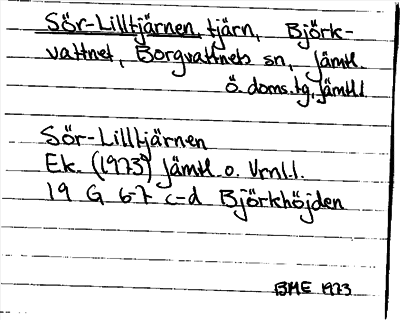 Sör-Lilltjärnen, tjärn, Björk-
vattnet, Borgvattnets sn, Jämtl.
ö. doms.tg, Jämtl.l
Sör-Lilltjärnen
Ek. (1973) Jämtl. o. Vrnl.l.
19 G 6-7 c-d Björkhöjden
BME 1973